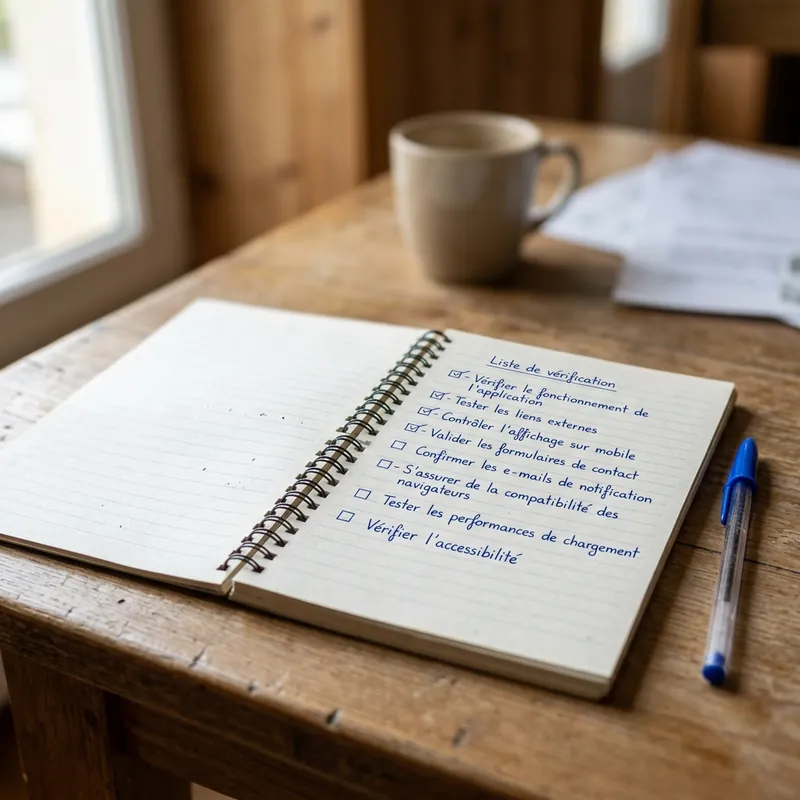 Liste de vérification
☑ - Vérifier le fonctionnement de
l'application
☑ - Tester les liens externes
☑ - Contrôler l'affichage sur mobile
☑ - Valider les formulaires de contact
☐ Confirmer les e-mails de notification
☐ - S'assurer de la compatibilité des
navigateurs
☐ Tester les performances de chargement
☐ Vérifier l'accessibilité